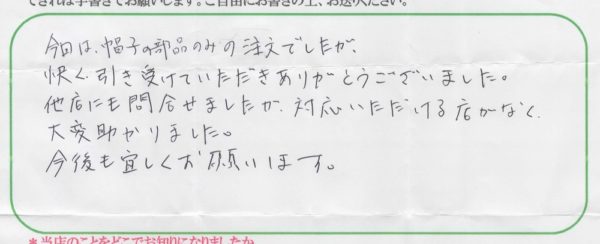 できれば手書きでお願いします。ご自由にお書きの上、お送りください。
今回は、帽子の部品のみの注文でしたが、
快く引き受けていただきありがとうございました。
他店にも問合せましたが、対応いただける店がなく、
大変助かりました。
今後も宜しくお願いします。
*当店のことをどこでお知りになりましたか